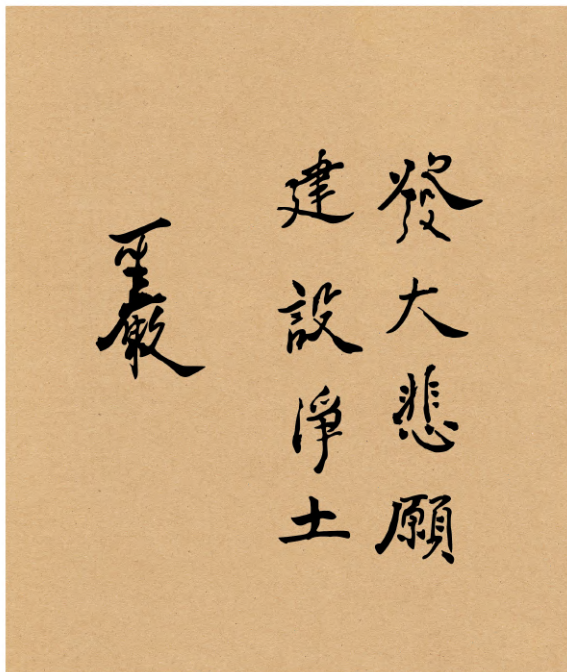 發大悲願
建設淨土
聖嚴